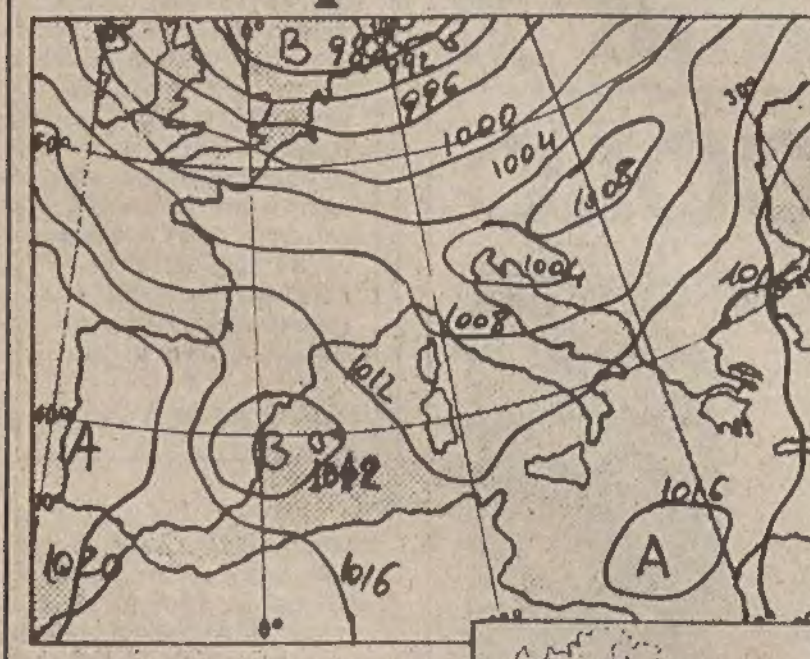 0°
B 98
992
996
1000
1004
1008
300
1004
1008
1012
A
B
1012
1016
A
1020
1016
0°